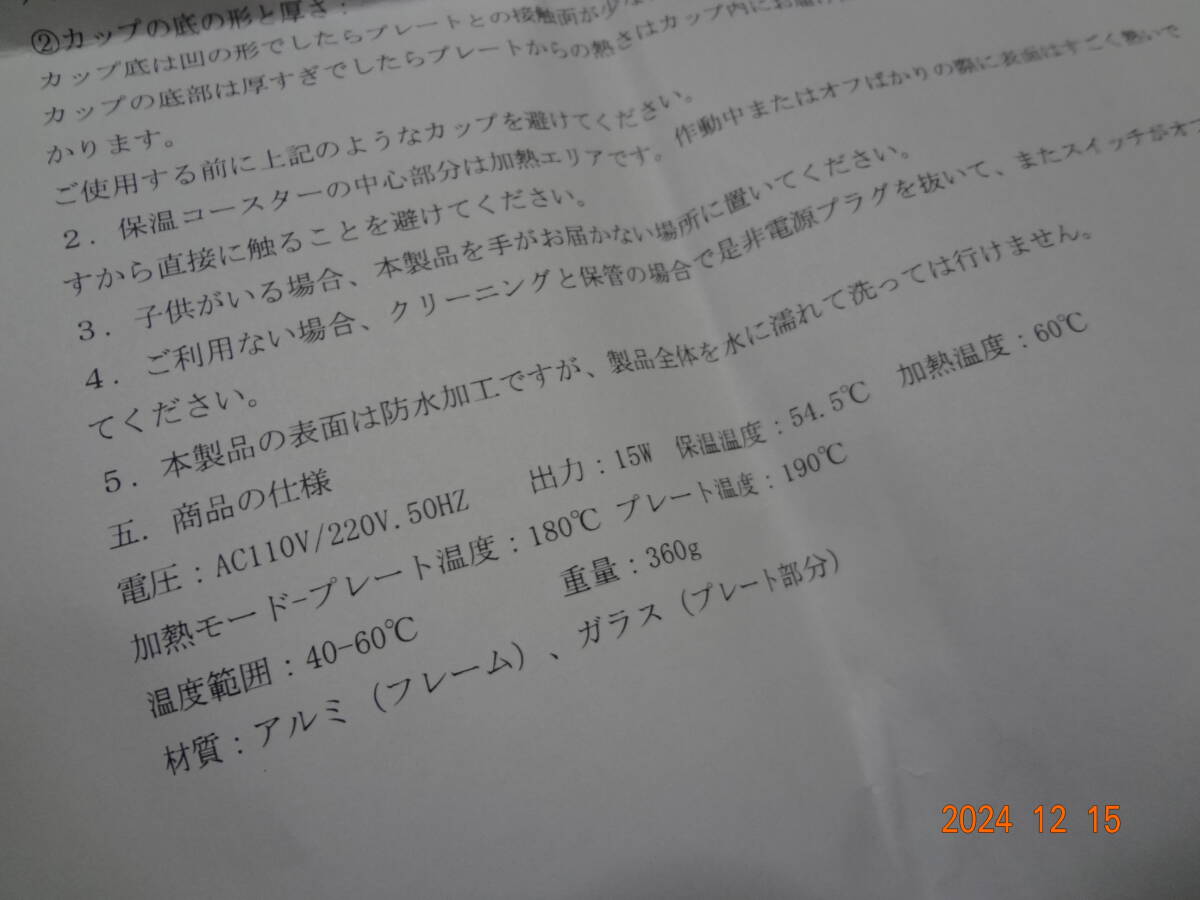 ②カップの底の形と厚さ：
カップ底は凹の形でしたらプレートとの接触面が少な
カップの底部は厚すぎでしたらプレートからの熱さはカップ内にお届け
かります。
ご使用する前に上記のようなカップを避けてください。
２．保温コースターの中心部分は加熱エリアです。作動中またはオフばかりの際に表面はすごく熱いで
すから直接に触ることを避けてください。
３．子供がいる場合、本製品を手がお届かない場所に置いてください。
４．ご利用ない場合、クリーニングと保管の場合で是非電源プラグを抜いて、またスイッチがオフ
てください。
５．本製品の表面は防水加工ですが、製品全体を水に濡れて洗っては行けません。
五．商品の仕様
電圧：AC110V/220V.50HZ 出力：15W 保温温度：54.5℃ 加熱温度：60℃
加熱モード-プレート温度：180℃ プレート温度：190℃
温度範囲：40-60℃ 重量：360g
材質：アルミ（フレーム）、ガラス（プレート部分）
2024 12 15